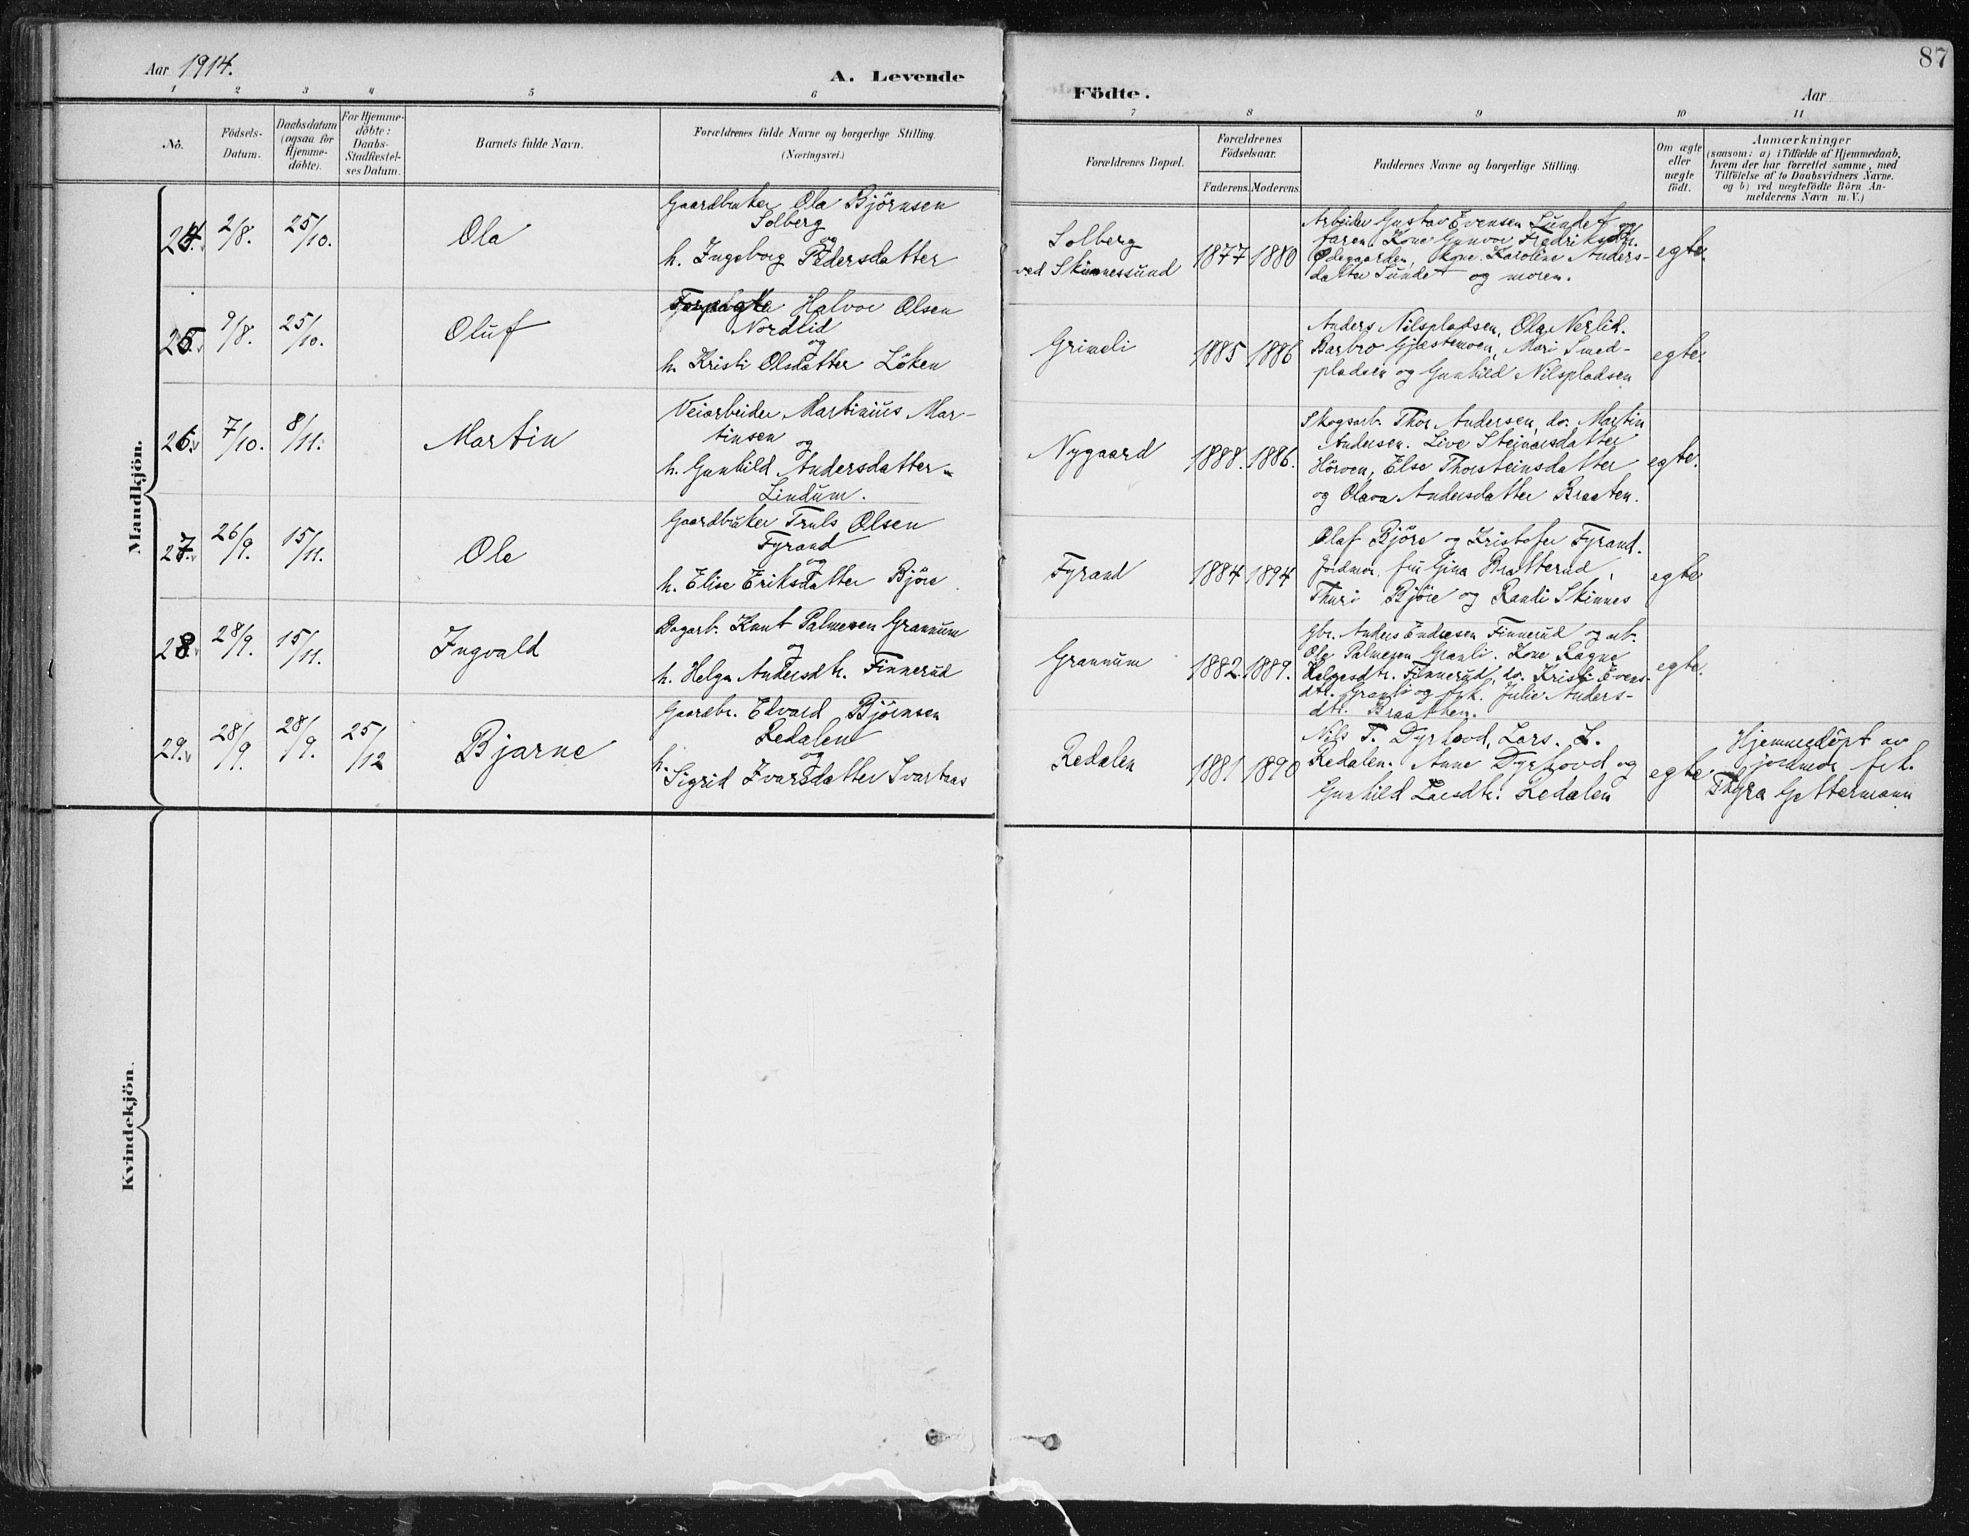 87
Aar 1914.
A. Levende
Födte.
Aar
1 2 3 4 5 6
7 8 9 10 11
No.
Födsels-
Datum.
Daabsdatum
(ogsaa for
Hjemme-
döbte).
For Hjemme-
döbte:
Daabs-
Stadfæstel-
ses Datum.
Barnets fulde Navn.
Forældrenes fulde Navne og borgerlige Stilling.
(Næringsvei.)
Forældrenes Bopæl.
Forældrenes
Födselsaar.
Faderens.
Moderens.
Faddernes Navne og borgerlige Stilling.
Om ægte
eller
uægte
födt.
Anmærkninger
(saasom: a) i Tilfælde af Hjemmedaab,
hvem der har forrettet samme, med
Tilföielse af to Daabsvidners Navne.
og b) ved uægtefödte Börn An-
melderens Navn m. V.)
Mandkjön.
24.
2/8.
25/10.
Ola
Gaardbruker Ola Björnsen
Solberg
og
h. Ingeborg Pedersdatter
Solberg
ved Skinnessund
1877
1880
Arbeider Gustav Evensen Sundet og
faren. Kone Gunvor Fredriksdtr.
Ødegaarden, kone Karoline Anders-
datter Sundet og moren.
egte.
25.
9/8.
25/10.
Oluf
Halvor Olsen
Nordlid
og
h. Kristi Olsdatter Löken
Grimeli
1885
1886
Anders Nilspladsen, Ola Nerlid.
Barbro Gjæstemoen, Mari Smed-
pladsen og Gunhild Nilspladsen
egte.
26.
7/10.
8/11.
Martin
Veiarbeider Martinius Mar-
tinsen
og
h. Gunhild Andersdatter
Lindum.
Nygaard
1888.
1886.
Skogsarb. Thor Andersen, do. Martin
Andersen. Live Steinarsdatter
Hörven, Else Thorsteinsdatter
og Olava Andersdatter Braaten.
egte.
27.
26/9.
15/11.
Ole
Gaardbruker Truls Olsen
Fyrand
og
h. Elise Eriksdatter Björe
Fyrand
1884
1894
Olaf Björe og Kristofer Fyrand.
Jordmor fru Gina Bratterud,
Thuri Björe og Randi Skinnes
egte
28.
28/9.
15/11.
Ingvald
Dagarb. Knut Palmesen Grannum
og
h. Helga Andersdtr. Finnerud
Grannum
1882.
1889.
Gbr. Anders Endresen Finnerud og arb.
Ole Palmesen Granli. Kone Ragne
Helgesdtr. Finnerud, do. Kristi Evens-
dtr. Granli og frk. Julie Anders-
dtr. Braathen.
egte.
29.
28/9.
28/9.
25/12
Bjarne
Gaardbr. Edvard Björnsen
Redalen
og
h. Sigrid Ivarsdatter Svartaas
Redalen
1881
1890
Nils T. Dyrhovd, Lars. L.
Redalen. Anne Dyrhovd og
Gunhild Larsdtr. Redalen
egte
Hjemmedöpt av
jordmor frk.
Thyra Gettermann
Kvindekjön.